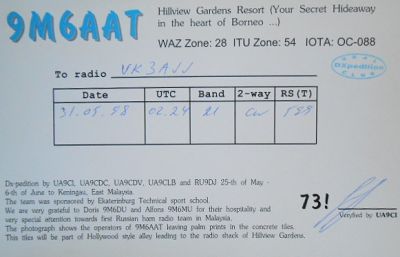 9M6AAT
Hillview Gardens Resort (Your Secret Hideaway
in the heart of Borneo ...)
WAZ Zone: 28 ITU Zone: 54 IOTA: OC-088
To radio VK3AJJ
URAL
DXpedition
CLUB
Date UTC Band 2-way RS(T)
31.05.98 02.24 21 CW 599
Dx-pedition by UA9CI, UA9CDC, UA9CDV, UA9CLB and RU9DJ 25-th of May -
6-th of June to Keningau, East Malaysia.
The team was sponsored by Ekaterinburg Technical sport school.
We are very grateful to Doris 9M6DU and Alfons 9M6MU for their hospitality and
very special attention towards first Russian ham radio team in Malaysia.
The photograph shows the operators of 9M6AAT leaving palm prints in the concrete tiles.
This tiles will be part of Hollywood style alley leading to the radio shack of Hillview Gardens.
73!
Veryfied by UA9CI